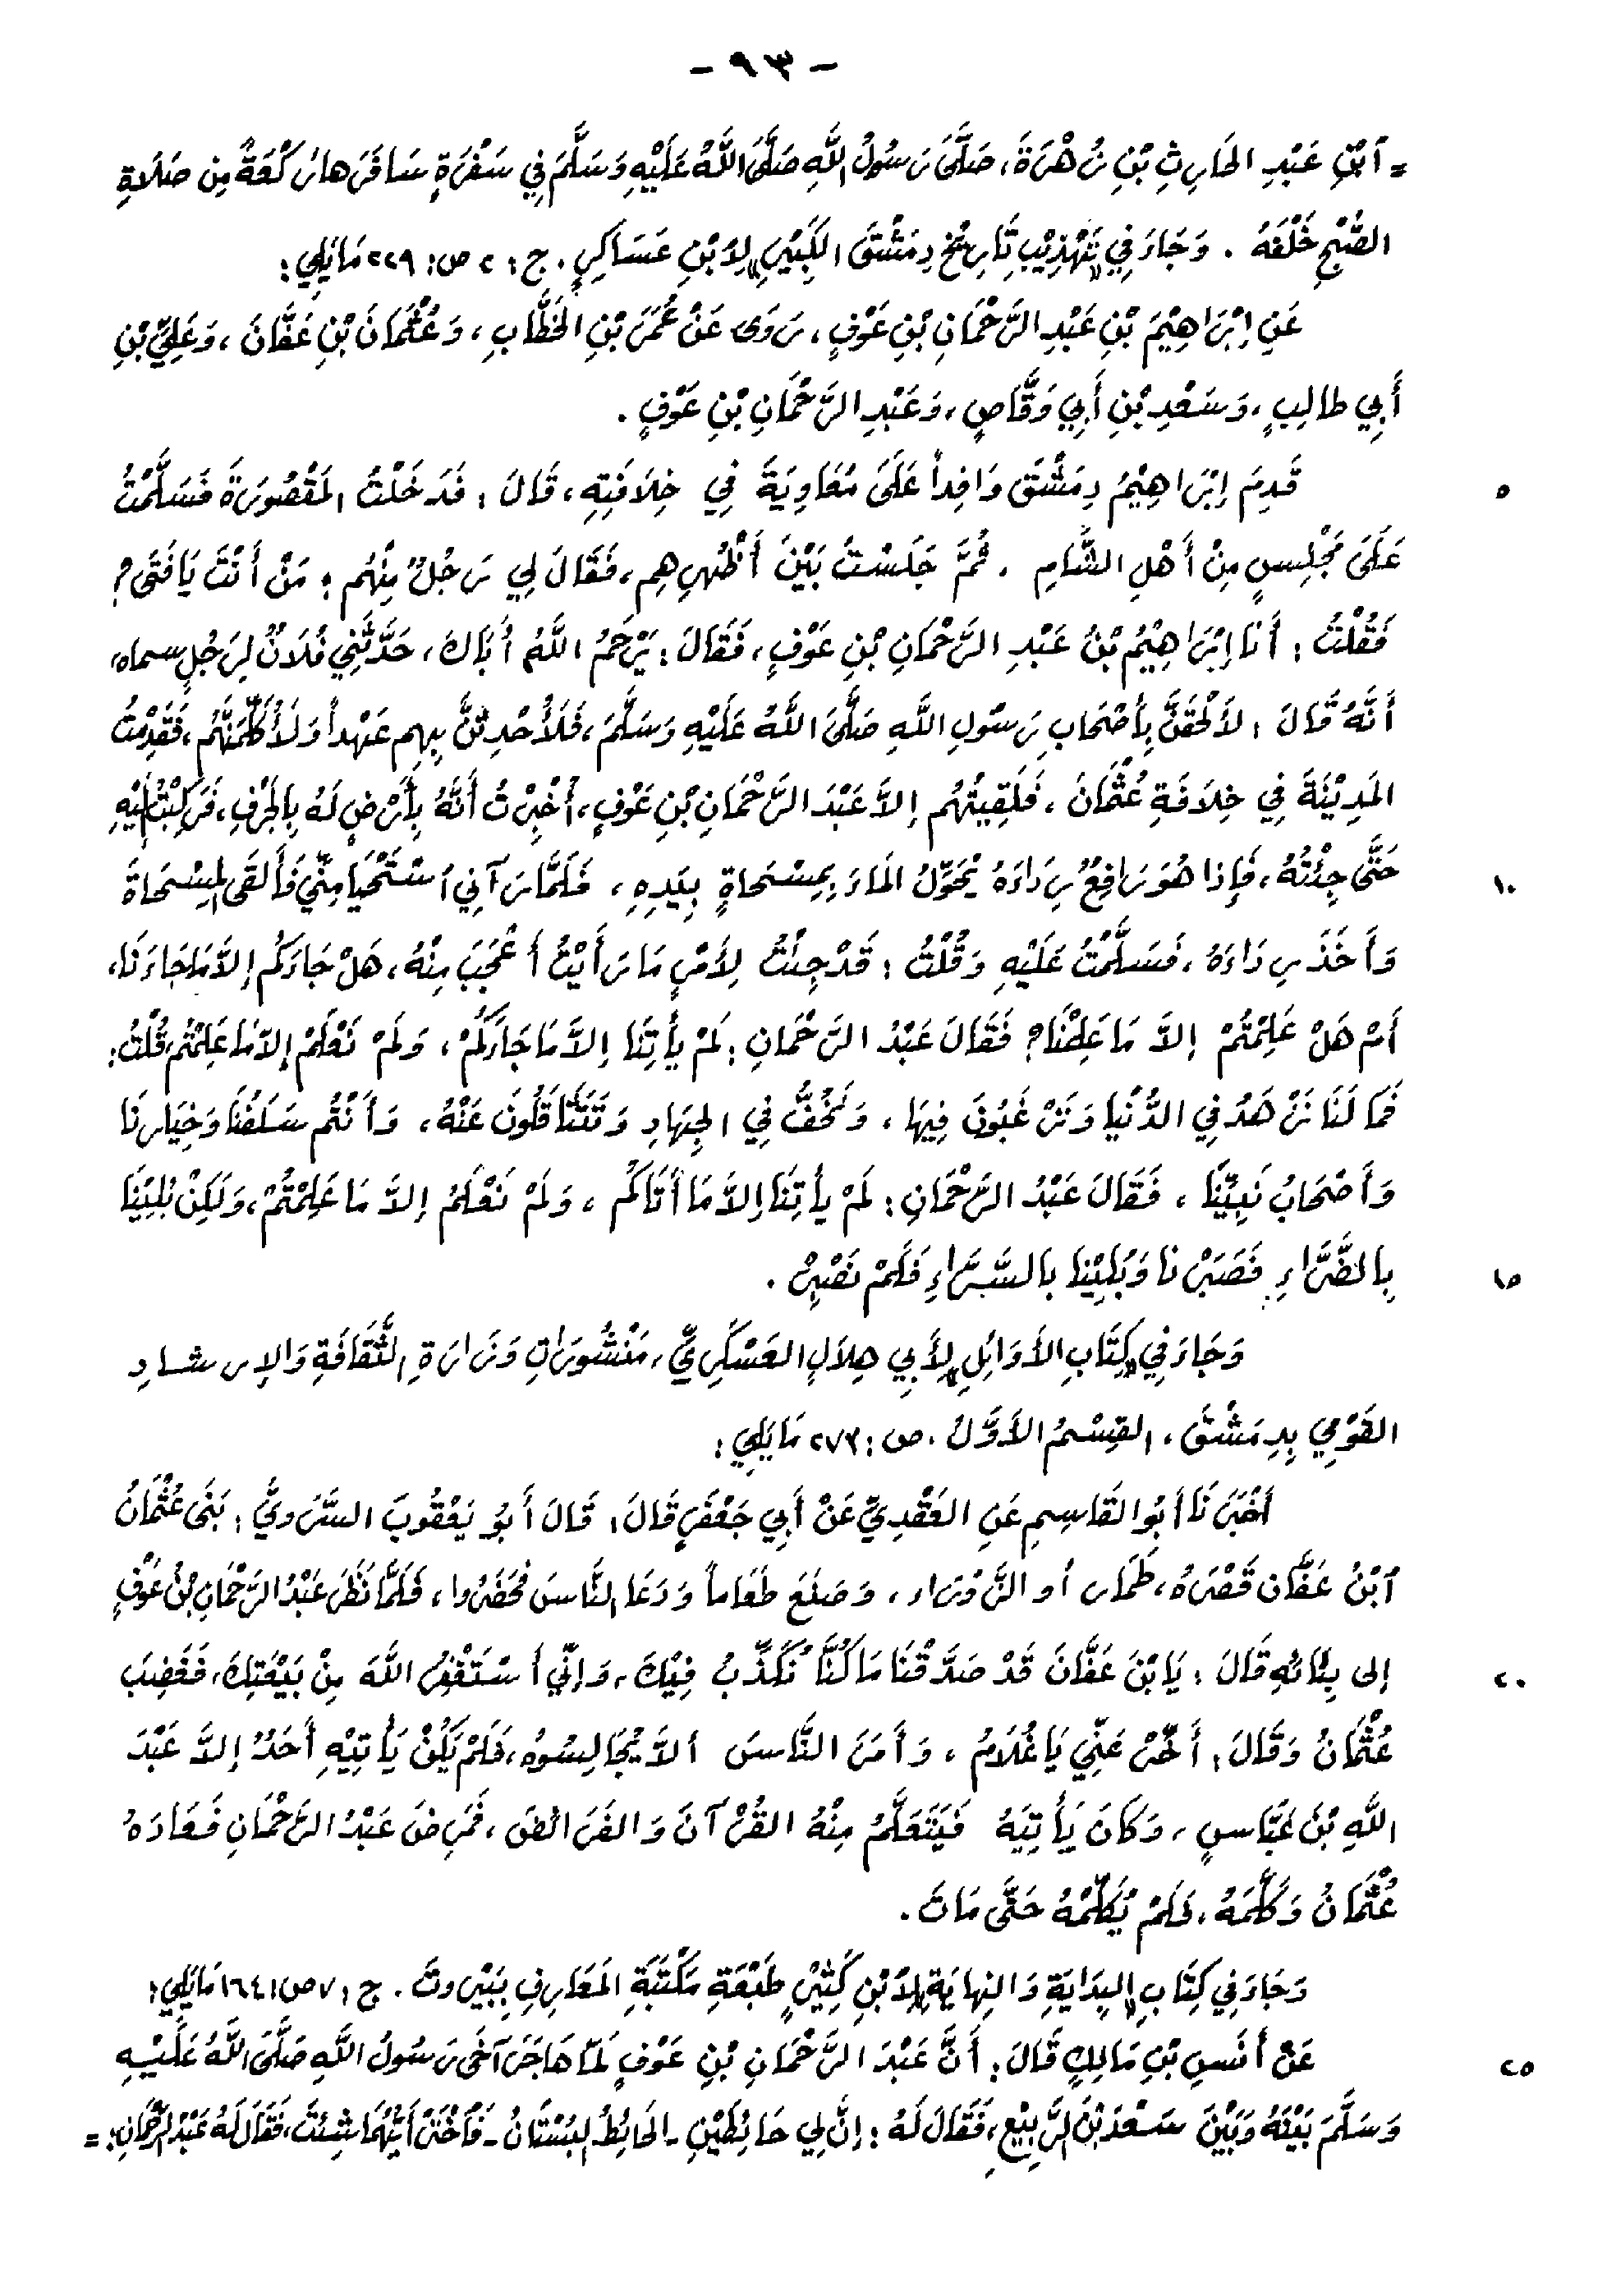 - ٩٣ -
= ٱبْنِ عَبْدِ الحَارِثِ بْنِ زُهْرَةَ، صَلَّىَ رَسُولُ اللَّهِ صَلَّىَ اللَّهُ عَلَيْهِ وَسَلَّمَ فِي سَفْرَةٍ سَافَرَها رَكْعَةً مِن صَلَاةِ
الصُّبْحِ خَلْفَهُ . وَجَاءَ فِي «تَهْذِيْبِ تَارِيْخِ دِمَشْقَ الكَبِيْرِ» لِابْنِ عَسَاكِرٍ . ج: ٢ ص: ٢٢٩ مَايَلِي:
عَنِ إِبْرَاهِيْمَ بْنِ عَبْدِ الرَّحْمَانِ بْنِ عَوْفٍ، رَوَى عَنْ عُمَرَ بْنِ الخَطَّابِ، وَعُثْمَانَ بْنِ عَفَّانَ، وَعَلِيِّ بْنِ
أَبِي طالِبٍ، وَسَعْدِ بْنِ أَبِي وَقَّاصٍ، وَعَبْدِ الرَّحْمَانِ بْنِ عَوْفٍ .
٥ قَدِمَ إِبْرَاهِيْمُ دِمَشْقَ وَافِداً عَلَىَ مُعَاوِيَةَ فِي خِلَافَتِهِ، قَالَ: فَدَخَلْتُ المَقْصُورَةَ فَسَلَّمْتُ
عَلَىَ مَجْلِسٍ مِنْ أَهْلِ الشَّامِ . ثُمَّ جَلَسْتُ بَيْنَ أَظْهُرِهِم، فَقَالَ لِي رَجُلٌ مِنْهُم: مَنْ أَنْتَ يَا فَتَى؟
فَقُلْتُ: أَنَا إِبْرَاهِيْمُ بْنُ عَبْدِ الرَّحْمَانِ بْنِ عَوْفٍ، فَقَالَ: يَرْحَمُ اللَّهُ أَبَاكَ، حَدَّثَنِي فُلَانٌ لِرَجُلٍ سماه،
أَنَّهُ قَالَ: لَأَلْحَقَنَّ بِأَصْحَابِ رَسُولِ اللَّهِ صَلَّىَ اللَّهُ عَلَيْهِ وَسَلَّمَ، فَلَأُحْدِثَنَّ بِهِم عَهْداً وَلَأُكَلِّمَنَّهُم، فَقَدِمْتُ
المَدِيْنَةَ فِي خِلَافَةِ عُثْمَانَ، فَلَقِيتُهُم إِلاَّ عَبْدَ الرَّحْمَانِ بْنِ عَوْفٍ، أُخْبِرْتُ أَنَّهُ بِأَرْضٍ لَهُ بِالجُرْفِ، فَرَكِبْتُ إِلَيْهِ
١٠ حَتَّى جِئْتُهُ، فَإِذا هُوَ رَافِعٌ رِدَاءَهُ يُحَوِّلُ المَاءَ بِمِسْحَاةٍ بِيَدِهِ، فَلَمَّا رَآنِي ٱسْتَحْيَا مِنِّي فَأَلقَى المِسْحَاةَ
وَأَخَذَ رِدَاءَهُ، فَسَلَّمْتُ عَلَيْهِ وَقُلْتُ: قَدْ جِئْتُ لِأَمْرٍ مَا رَأَيْتُ أَعْجَبَ مِنْهُ، هَلْ جَاءَكُم إِلاَّ مَا جَاءَنَا،
أَمْ هَلْ عَلِمْتُمْ إِلاَّ مَا عَلِمْنَا؟ فَقَالَ عَبْدُ الرَّحْمَانِ: لَمْ يَأْتِنَا إِلاَّ مَا جَاءَكُمْ، وَلَمْ نَعْلَمْ إِلاَّ مَا عَلِمْتُم، قُلْتُ:
فَمَا لَنَا نَزْهَدُ فِي الدُّنْيَا وَتَرْغَبُونَ فِيهَا، وَنَخُفُّ فِي الجِهَادِ وَتَتَثَاقَلُونَ عَنْهُ، وَأَنْتُم سَلَفُنَا وَخِيَارُنَا
وَأَصْحَابُ نَبِيِّنَا، فَقَالَ عَبْدُ الرَّحْمَانِ: لَمْ يَأْتِنَا إِلاَّ مَا أَتَاكُم، وَلَمْ نَعْلَمْ إِلاَّ مَا عَلِمْتُمْ، وَلَكِنْ بُلِيْنَا
١٥ بِالضَّرَّاءِ فَصَبَرْنا وَبُلِيْنا بالسَّرَّاءِ فَلَمْ نَصْبِرْ .
وَجَاءَ فِي «كِتَابِ الأَوَائِلِ» لِأَبِي هِلَالٍ العَسْكَرِيِّ، مَنْشُورَاتِ وَزَارَةِ الثَّقَافَةِ وَالإِرشادِ
القَوْمِيِ بِدِمَشْقَ، القِسْمُ الأَوَّلُ . ص: ٢٧٣ مَايَلِي:
أَخْبَرَنَا أَبُو القَاسِمِ عَنِ العَقْدِيِّ عَنْ أَبِي جَعْفَرٍ قَالَ: قَالَ أَبُو يَعْقُوبَ السَّرَويُّ: بَنَى عُثْمَانُ
ٱبْنُ عَفَّان قَصْرَهُ، طَمَار أو الزَّوْرَاء، وَصَنَعَ طَعَاماً وَدَعَا النَّاسَ فَحَضَرُوا، فَلَمَّا نَظَرَ عَبْدُ الرَّحْمَانِ بْنُ عَوْفٍ
٢٠ إلى بِنَائهِ قَالَ: يَا بْنَ عَفَّانَ قَدْ صَدَّقْنَا مَا كُنَّا نُكَذِّبُ فِيْكَ، وَإِنِّي أَسْتَغْفِرُ اللَّهَ مِنْ بَيْعَتِكَ، فَغَضِبَ
عُثْمَانُ وَقَالَ: أَخِّرْهُ عَنِّي يَا غُلَامُ، وَأَمَرَ النَّاسَ أَلاَّ يُجَالِسُوهُ، فَلَمْ يَكُنْ يَأْتِيْهِ أَحَدٌ إِلاَّ عَبْدَ
اللَّهِ بْنَ عَبَّاسٍ، وَكَانَ يَأْتِيَهُ فَيَتَعَلَّمُ مِنْهُ القُرْآنَ وَالفَرَائضَ، فَمَرِضَ عَبْدُ الرَّحْمَانِ فَعَادَهُ
عُثْمَانُ وَكَلَّمَهُ، فَلَمْ يُكَلِّمْهُ حَتَّى مَاتَ .
وَجَاءَ فِي كِتَابِ «البِدَايَةِ وَالنِهايَةِ» لِابْنِ كَثِيْرٍ طَبْعَةِ مَكْتَبَةِ المَعَارِفِ بِبَيْرُوتَ . ج: ٧ ص: ١٦٤ مَايَلِي:
٢٥ عَنْ أَنَسِ بْنِ مَالِكٍ قَالَ: أَنَّ عَبْدَ الرَّحْمَانِ بْنِ عَوْفٍ لَمّا هَاجَرَ آخَى رَسُولُ اللَّهِ صَلَّىَ اللَّهُ عَلَيْهِ
وَسَلَّمَ بَيْنَهُ وَبَيْنَ سَعْدَ بْنَ الرَّبِيْعِ، فَقَالَ لَهُ: إِنَّ لِي حَائِطَيْنِ - الحَائِطُ البُسْتَانُ - فَٱخْتَرْ أَيَّهُمَا شِئْتَ، فَقَالَ لَهُ عَبْدُ الرَّحْمَانِ: =